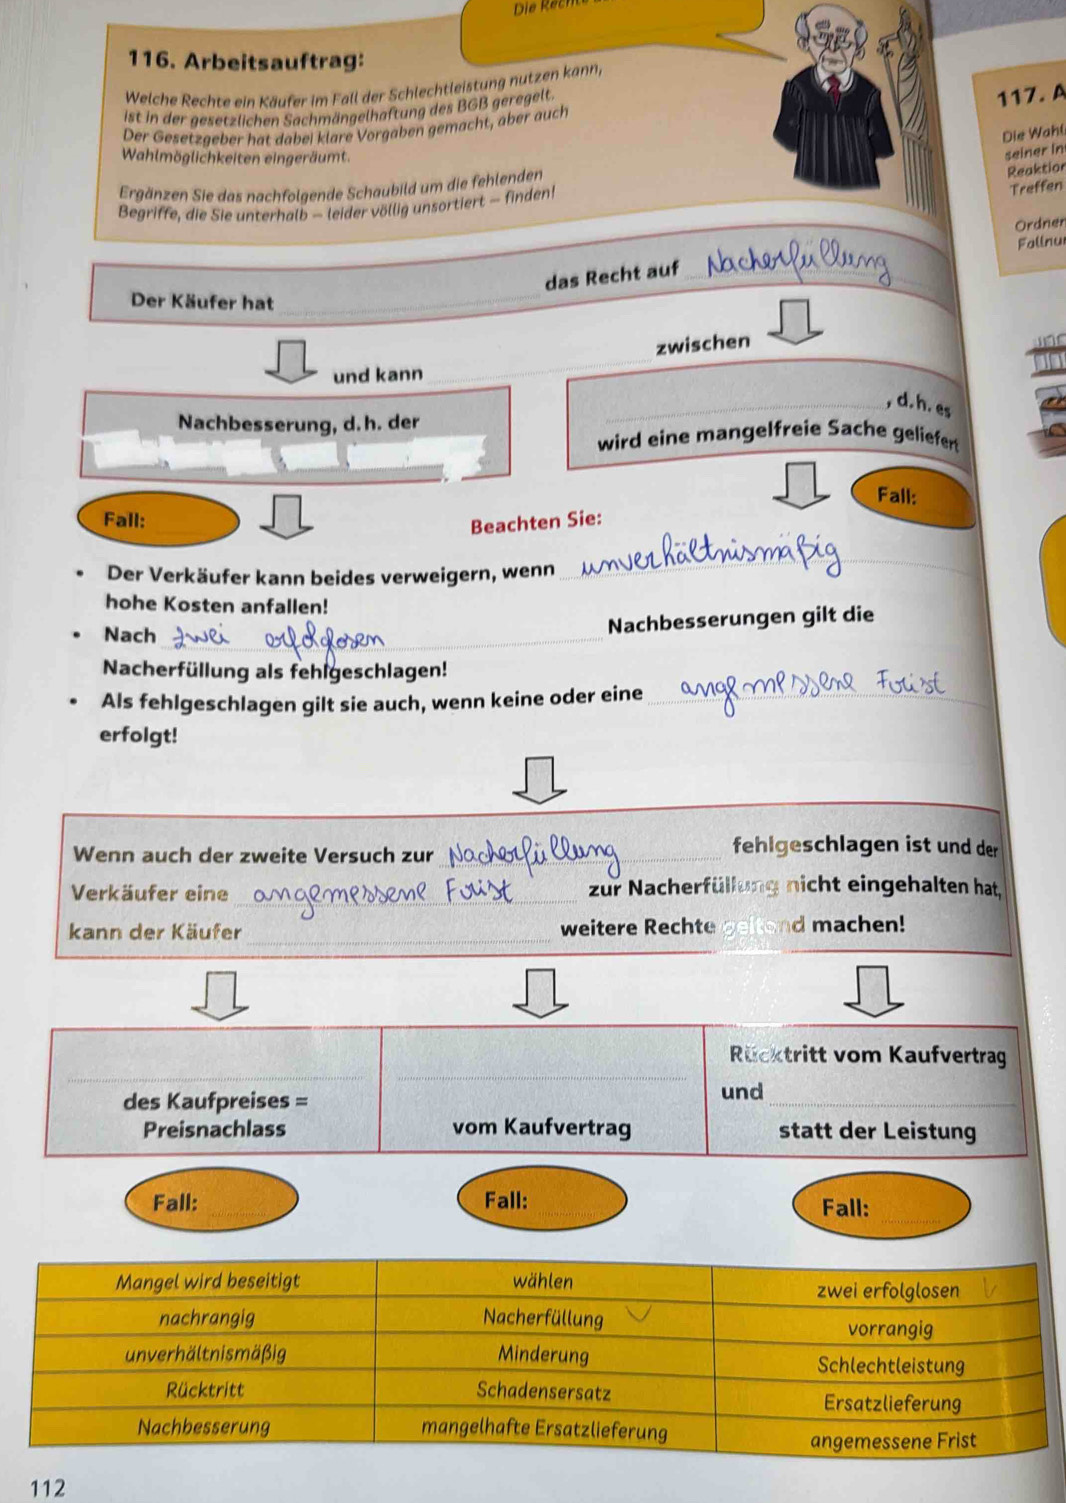 Die Rech
116. Arbeitsauftrag:
Welche Rechte ein Käufer im Fall der Schlechtleistung nutzen kann,
ist in der gesetzlichen Sachmängelhaftung des BGB geregelt.
Der Gesetzgeber hat dabei klare Vorgaben gemacht, aber auch
Wahlmöglichkeiten eingeräumt.
Ergänzen Sie das nachfolgende Schaubild um die fehlenden
Begriffe, die Sie unterhalb – leider völlig unsortiert – finden!
Der Käufer hat das Recht auf Nacherfüllung
und kann zwischen
Nachbesserung, d.h. der
, d.h. es
wird eine mangelfreie Sache geliefert
Fall:
Fall:
Beachten Sie:
• Der Verkäufer kann beides verweigern, wenn unverhältnismäßig
hohe Kosten anfallen!
• Nach zwei erfolglosen Nachbesserungen gilt die
Nacherfüllung als fehlgeschlagen!
• Als fehlgeschlagen gilt sie auch, wenn keine oder eine angemessene Frist
erfolgt!
Wenn auch der zweite Versuch zur Nacherfüllung fehlgeschlagen ist und der
Verkäufer eine angemessene Frist zur Nacherfüllung nicht eingehalten hat,
kann der Käufer weitere Rechte geltend machen!
des Kaufpreises =
Preisnachlass
vom Kaufvertrag
Rücktritt vom Kaufvertrag
und
statt der Leistung
Fall:
Fall:
Fall:
Mangel wird beseitigt wählen zwei erfolglosen
nachrangig Nacherfüllung vorrangig
unverhältnismäßig Minderung Schlechtleistung
Rücktritt Schadensersatz Ersatzlieferung
Nachbesserung mangelhafte Ersatzlieferung angemessene Frist
112
117. A
Die Wahl
seiner In
Reaktion
Treffen
Ordner
Fallnu